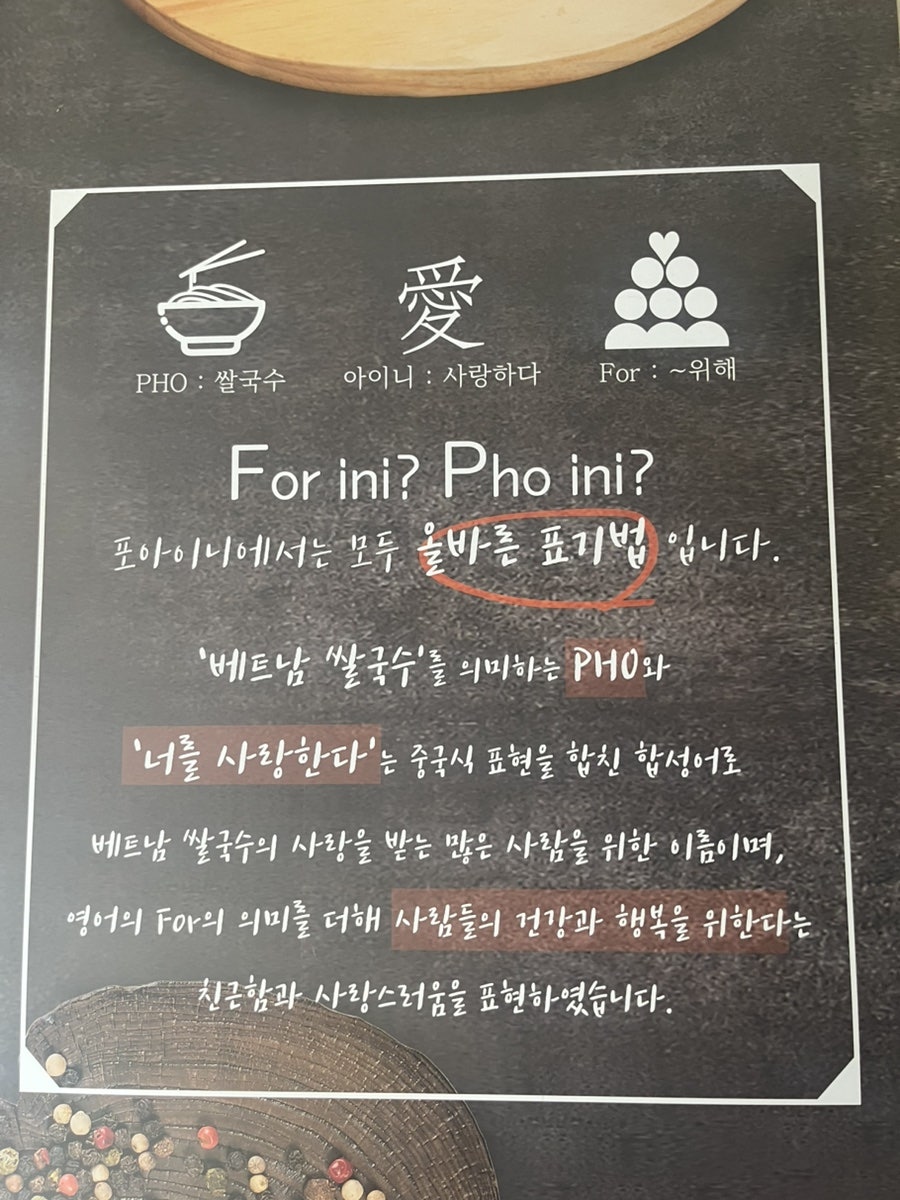 愛
PHO : 쌀국수
아이니 : 사랑하다
For : ~위해
For ini? Pho ini?
포아이니에서는 모두 올바른 표기법 입니다.
'베트남 쌀국수'를 의미하는 PHO와
'너를 사랑한다'는 중국식 표현을 합친 합성어로
베트남 쌀국수의 사랑을 받는 많은 사람을 위한 이름이며,
영어의 For의 의미를 더해 사람들의 건강과 행복을 위한다는
친근함과 사랑스러움을 표현하였습니다.